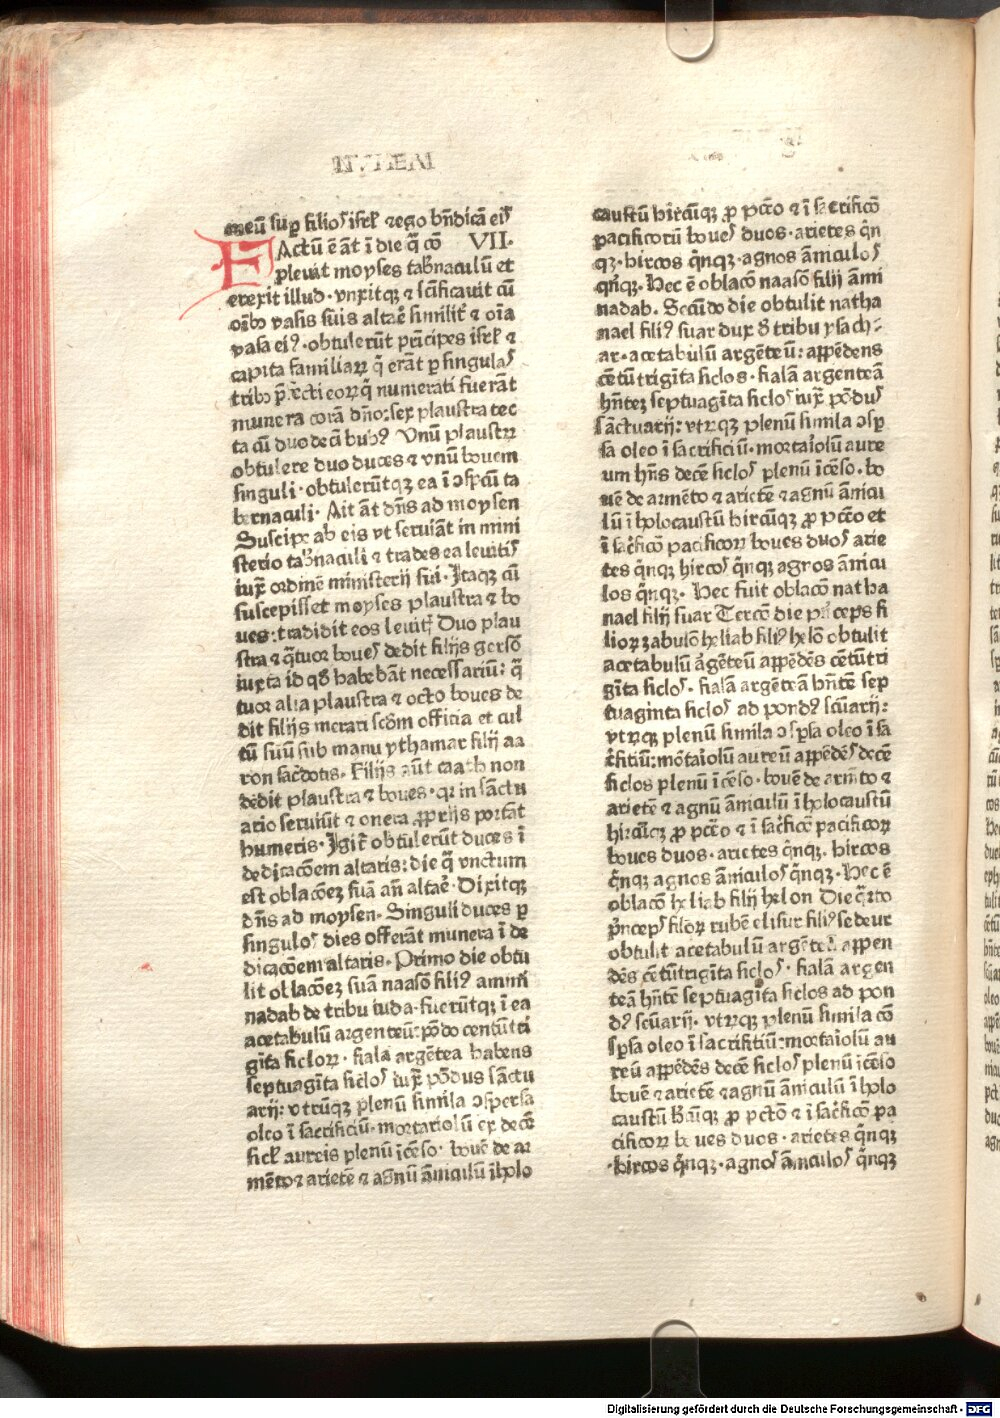 meū suꝑ filios isrl ⁊ego bn̄dicā eis
FActū ē āt ī die q̄ cō VII.
pleuit moyses tab̓naculū et
erexit illud. vnxitqꝫ ⁊ sc̄ificauit cū
oīb⁹ vasis suis altaē similit̓ ⁊ oīa
vasa ei⁹. obtulerūt prīcipes isrl ⁊
capita familiaꝝ q̄ erāt ꝑ singulas
trib⁹ p̄fecti eoꝝq̄ numerati fuerāt
munera corā dn̄o: sex plaustra tec
ta cū duodecī bub⁹ Vnū plaustꝝ
obtulere duo duces ⁊ vnū bouem
singuli. obtulerūtqꝫ ea ī ↄspc̄ū ta
bernaculi. Ait āt dn̄s ad moysen
Suscipe ab eis vt seruiāt in mini
sterio tab̓naculi ⁊ trades ea leuitis
iux̄ ordinē ministerij sui. Itaqꝫ cū
suscepisset moyses plaustra ⁊ bo
ues: tradidit eos leuit. Duo plau
stra ⁊ q̄tuor boues dedit filijs gersō
iuxta id qd̄ habebāt necessariū: q̄
tuor alia plaustra ⁊ octo boues de
dit filijs merari scd̄m officia et cul
tū suū sub manu ythamar filij aa
ron sac̓dotis. Filijs aūt caath non
dedit plaustra ⁊ boues. qr in sāctu
ario seruiūt ⁊ onera ꝓprijs portāt
humeris. Igit̓ obtulerūt duces ī
dedicacōem altaris: die q̄ vnctum
est oblacōeꝫ suā an̄ altaē. Dixitqꝫ
dn̄s ad moysen. Singuli duces ꝑ
singulos dies offerāt munera ī de
dicacōem altaris. Primo die obtu
lit oblacōeꝫ suā naasō fili⁹ amin
nadab de tribu iuda. fuerūtqꝫ ī ea
acetabulū argenteū: pōdo centūtri
gīta sicloꝝ. fiala argētea habens
septuagīta siclos iux̄ pōdus sāctu
arij: vtrūqꝫ plenū simila ↄspersa
oleo ī sacrificiū. mortariolū ex decē
sicl̓ aureis plenū īcēso. bouē de ar
mēto⁊ arietē ⁊ agnū āniculū īholo
caustū hircūqꝫ ꝓ pctō ⁊ ī sacrificō
pacificorū boues duos. arietes q̄n
qꝫ. hircos q̄nqꝫ. agnos āniculos
qn̄qꝫ. Hec ē oblacō naasō filij āmi
nadab. Secūdo die obtulit natha
nael fili⁹ suar dux d̄ tribu ysach
ar. acetabulū argēteū: appēdens
cētūtrigīta siclos. fialā argenteā
hn̄teꝫ septuagīta siclos iux̄ pōdus
sāctuarij: vtrqꝫ plenū simila ↄsꝑ
sa oleo ī sacrificiū. mortaiolū aure
um hn̄s decē siclos plenū īcēso. bo
uē de armēto ⁊ arietē ⁊ agnū ānicu
lū ī holocaustū hircūqꝫ ꝓ pctō et
ī sac̓ficō pacificoꝝ boues duos arie
tes q̄nqꝫ hircos q̄nqꝫ agnos ānicu
los q̄nqꝫ. Hec fuit oblacō natha
nael filij suar Tercō die prīceps fi
lioꝝ zabulō heliab fili⁹ helō obtulit
acetabulū argēteū appēdēs cētūtri
gīta siclos. fialā argēteā hn̄tē sep
tuaginta siclos ad pond⁹ scūarij:
vtrqꝫ plenū simila ↄsꝑsa oleo ī sa
c̓fitiū: mōtaiolū aureū appēdēs decē
siclos plenū īcēso. bouē de armēto ⁊
arietē ⁊ agnū āniculū ī holocaustū
hircūqꝫ ꝓ pctō ⁊ ī sac̓ficō pacificoꝝ
boues duos. arietes q̄nqꝫ. hircos
q̄nqꝫ agnos āniculos q̄nqꝫ. Hec ē
oblacō heliab filij helon Die q̄rto
prīceps filioꝝ rubē elisur fili⁹ sedeur
obtulit acetabulū argēteū appen
dēs cētūtrigīta siclos. fialā argen
teā hn̄tē septuagīta siclos ad pon
d⁹ scūarij. vtrqꝫ plenū simila cō
sꝑsa oleo ī sacrifitiū: mortaiolū au
reū appēdēs decē siclos plenū īcēso
bouē ⁊ arietē ⁊ agnū āniculū ī holo
caustū hircūqꝫ ꝓ pctō ⁊ ī sac̓ficō pa
cificoꝝ boues duos. arietes q̄nqꝫ
hircos q̄nqꝫ. agnos āniculos q̄nqꝫ
Digitalisierung gefördert durch die Deutsche Forschungsgemeinschaft - DFG